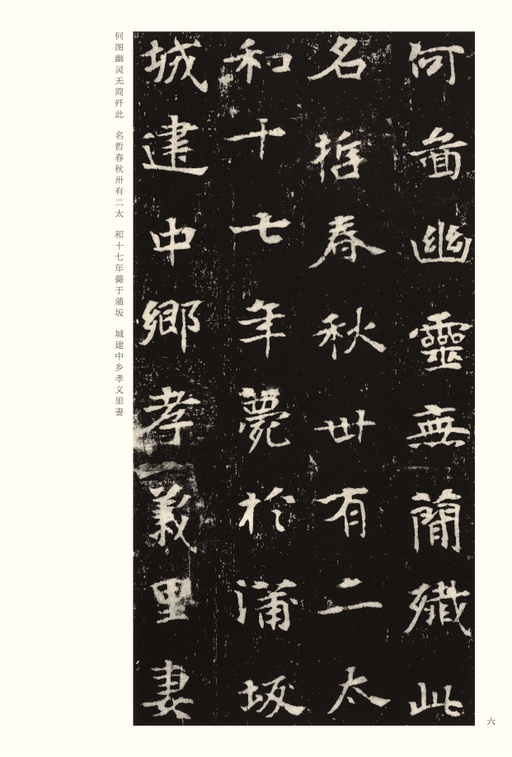 何啚幽靈無簡殱此
名哲春秋卅有二太
和十七年薨於蒲坂
城建中鄉孝義里妻
何图幽灵无简歼此 名哲春秋卅有二太 和十七年薨于蒲坂 城建中乡孝义里妻
六